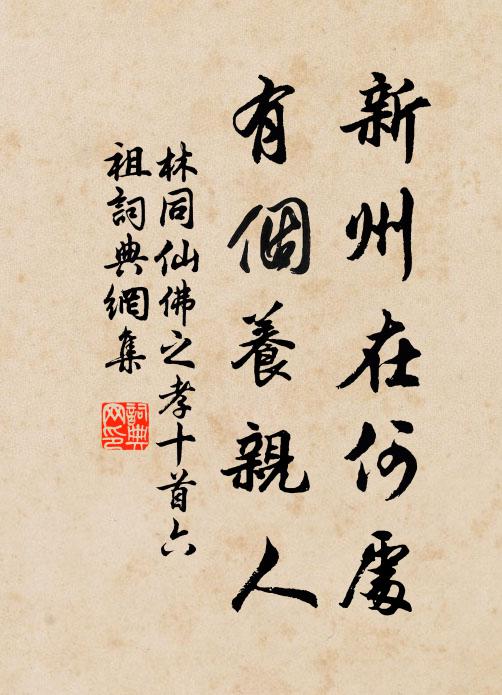 新州在何處
有個養親人
林同仙佛之孝十首六
祖詞典網集
詞典网印